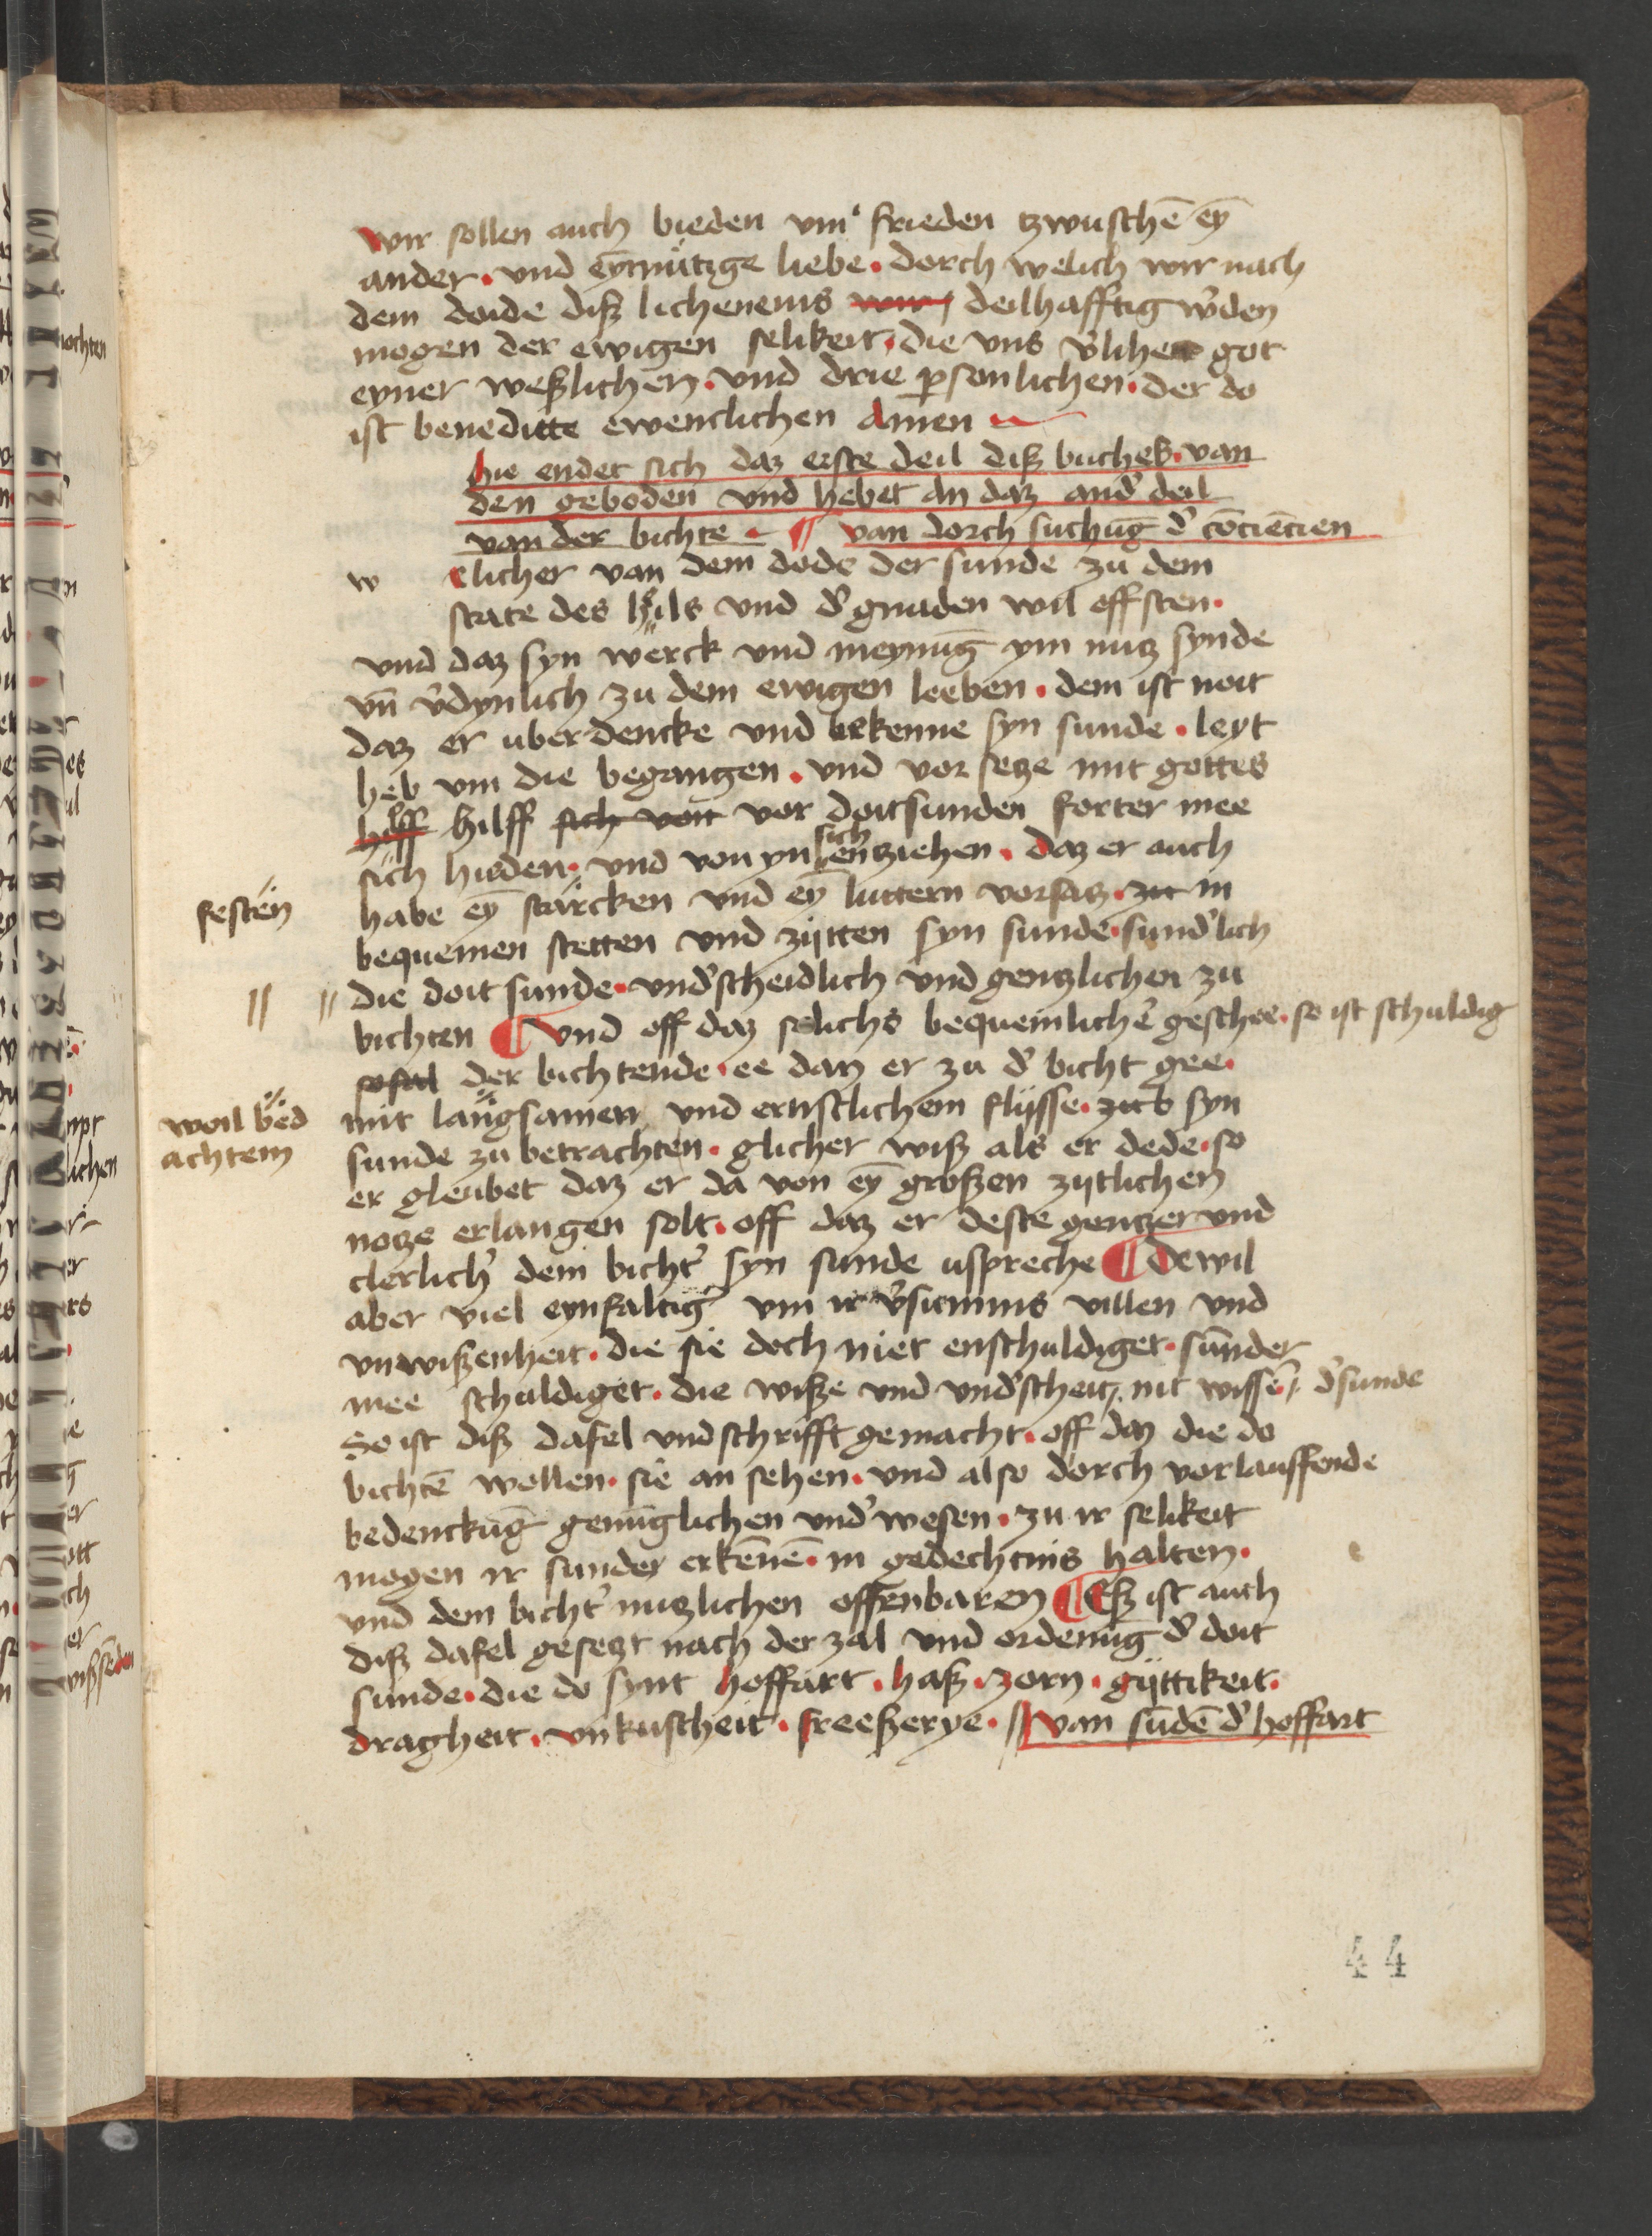 wir sollen auch bieden vm' frieden tzwuschē eȳ
ander · vnd eȳmütige liebe · dorch welich wir nach
dem doide diß lichenems deilhafftig w'den
mogen der ewigen selikeit · die vns v'lihe got
eyner weßlichen · vnd drie p̲sonlichen · der do
ist beneditte ewenclichen Amen
hie endet sich daz erste deil diß buches · van
den geboden vnd hebet an daz and' deil
van der bichte · ¶ van dorch suchūg d' cōciēcien
w elicher van dem dode der sunde zu dem
state des heils vnd d' gnaden wil offsten ·
vnd daz syn werck vnd meynūg ym nutz synde
vn̄ v'dynlich zu dem ewigen leeben · dem ist noit
daz er uberdencke vnd erkenne syn sunde · leyt
heb vm die begangen · vnd vor setze mit gottes
hilff hilff sich von vor doitsunden forter mee
sich hieden · vnd von yn sich entziehen · daz er auch
festen habe eȳ starcken vnd eȳ luttern vorsatz · zu in
bequemen stetten vnd zijtten syn sunde · sund'lich
// // die doit sunde · vnd'scheidlich vnd gentzlichen zu
bichten ¶ Vnd off daz solichs bequeinlich' geschee · so ist schuldig
so sal der bichtende · ee dan er zu d' bicht gee ·
woil bed achtem mit langsamen vnd ernstlichem flijsse · syn
sunde zu betrachten · glicher wiß als er dede · so
er gleubet daz er da von eȳ großen zijtlichen
notze erlangen solt · off daz er deste gentzer vnd
clerlich' dem bicht' syn sunde uspreche ¶ Dewil
aber viel eynfaltig' vm ir v'sumnis willen vnd
vnwißenheit · die sie doch niet enschuldiget · sunder
mee schuldiget · die wiße vnd vnd'scheit // nit wissē // d' sunde
So ist diß dafel vnd schrifft gemacht · off daz die do
bichtē wollen · sie an sehen · vnd also dorch vorlauffende
bedenckūg genūglichen vnd'wesen · zu ir selikeit
mogen ir sunder erkēnē · in gedechtnis halten ·
vnd dem bicht' nutzlichen offenbaren ¶ Eß ist auch
diß dafel gesetzt nach der zal vnd ordenūg d' doit
sunde · die do synt hoffart · haß · zorn · gijttikeit ·
dragheit · vnkuscheit · freeßerye · ¶ Van sūdē d' hoffart
44